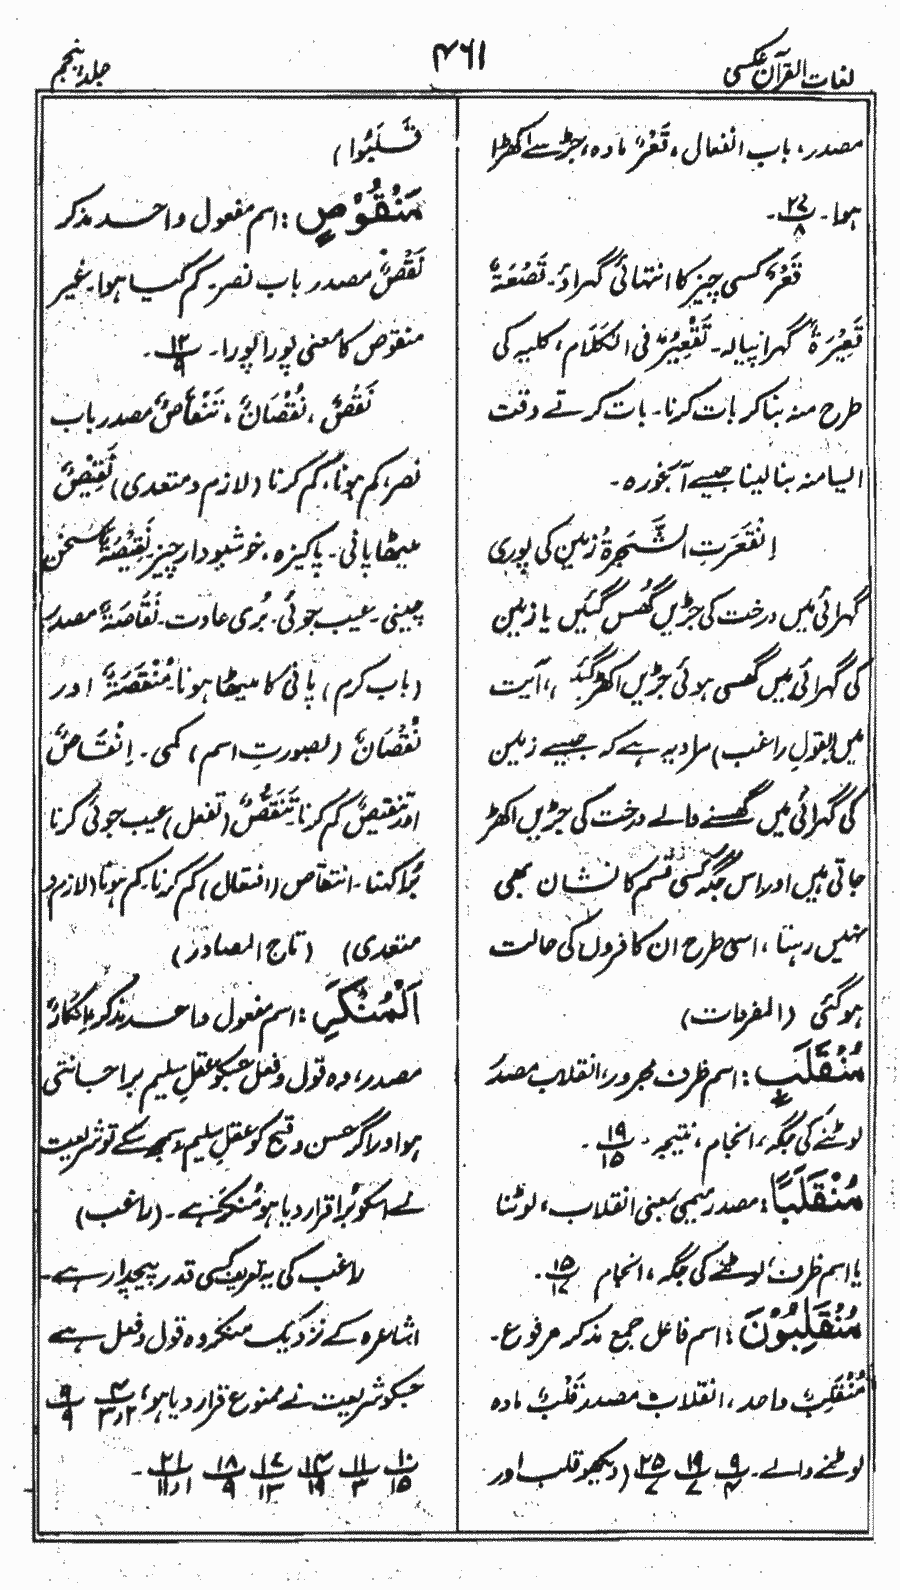 لغات القرآن عکسی
۴۶۱
جلد پنجم
مصدر، باب انفعال، قَعْرٌ مادہ، جڑ سے اکھڑا
ہوا۔ ۲۷/۸۔
قَعْرٌ کسی چیز کا انتہائی گہراؤ۔ قَصْعَۃٌ
قَعِیْرَۃٌ گہرا پیالہ۔ تَقْعِیْرٌ فی الکَلَام، کلیہ کی
طرح منہ بنا کر بات کرنا۔ بات کرتے وقت
ایسا منہ بنا لینا جیسے آبخورہ۔
اِنْقَعَرَتِ الشَّجَرَۃُ زمین کی پوری
گہرائی میں درخت کی جڑیں گُھس گئیں یا زمین
کی گہرائی میں گھسی ہوئی جڑیں اکھڑ گئیں، آیت
میں بقولِ راغب) مراد یہ ہے کہ جیسے زمین
کی گہرائی میں گھسنے والے درخت کی جڑیں اکھڑ
جاتی ہیں اور اس جگہ کسی قسم کا نشان بھی
نہیں رہتا، اسی طرح ان کافروں کی حالت
ہوگئی (المفردات)
مُنْقَلَبٍ: اسم ظرف مجرور، انقلاب مصدر
لوٹنے کی جگہ، انجام، نتیجہ۔ ۱۹/۱۵۔
مُنْقَلَبًا: مصدر میمی بمعنی انقلاب، لوٹنا
یا اسم ظرف، لوٹنے کی جگہ، انجام ۱۵/۱۷۔
مُنْقَلِبُوْنَ: اسم فاعل جمع مذکر مرفوع۔
مُنْقَلِبٌ واحد، انقلاب مصدر قَلْبٌ مادہ
لوٹنے والے۔ ۹/۴ ۱۹/۷ ۲۵/۷ (دیکھو قلب اور
تُقْلَبُوا)
مَنْقُوْصٍ: اسم مفعول واحد مذکر
نَقْصٌ مصدر باب نصر۔ کم کیا ہوا۔ غیر
منقوص کا معنی پورا پورا۔ ۱۲/۹۔
نَقْصٌ، نُقْصَانٌ، تَنْقَاصٌ مصدر باب
نصر، کم ہونا، کم کرنا (لازم و متعدی) نَقِیْصٌ
میٹھا پانی۔ پاکیزہ، خوشبودار چیز نَقِیْصَۃٌ سخن
چینی۔ عیب جوئی۔ بُری عادت۔ نَقَاصَۃٌ مصدر
(باب کرم) پانی کا میٹھا ہونا۔ مُنْقَصَۃٌ اور
نُقْصَانٌ (بصورتِ اسم) کمی۔ اِنْقَاصٌ
اور تَنْقِیصٌ کم کرنا۔ تَنَقُّصٌ (تفعل) عیب جوئی کرنا
بُرا کہنا۔ انتقاص (افتعال) کم کرنا۔ کم ہونا (لازم و
متعدی) (تاج المصادر)
اَلْمُنْکَرِ: اسم مفعول واحد مذکر اِنْکَارٌ
مصدر، وہ قول و فعل جسکو عقلِ سلیم برا جانتی
ہو اور اگر حسن و قبح کو عقلِ سلیم نہ سمجھ سکے تو شریعت
نے اسکو بُرا قرار دیا ہو مُنْکَرْ ہے۔ (راغب)
راغب کی یہ تعریف کسی قدر پیچدار ہے۔
اشاعرہ کے نزدیک منکر وہ قول و فعل ہے
جسکو شریعت نے ممنوع قرار دیا ہو، ۴/۲ و ۳ ۹/۹
۱۰/۱۵ ۱۱/۳ ۱۴/۱۹ ۱۷/۱۳ ۱۸/۹ ۲۱/۱ و ۱۱۔